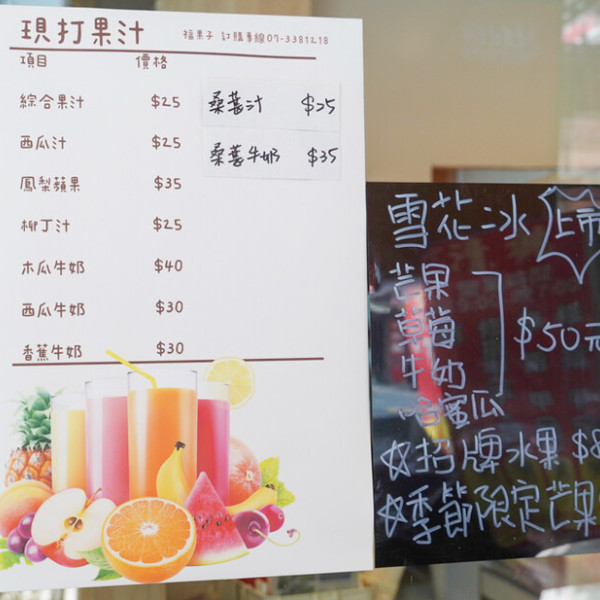 現打果汁
福果子 訂購專線07-3381218
項目 價格
綜合果汁 $25
西瓜汁 $25
鳳梨蘋果 $35
柳丁汁 $25
木瓜牛奶 $40
西瓜牛奶 $30
香蕉牛奶 $30
桑葚汁 $35
桑葚牛奶 $35
雪花冰 上市
芒果
草莓
牛奶
哈蜜瓜
$50元
☆招牌水果 $8
☆季節限定芒果